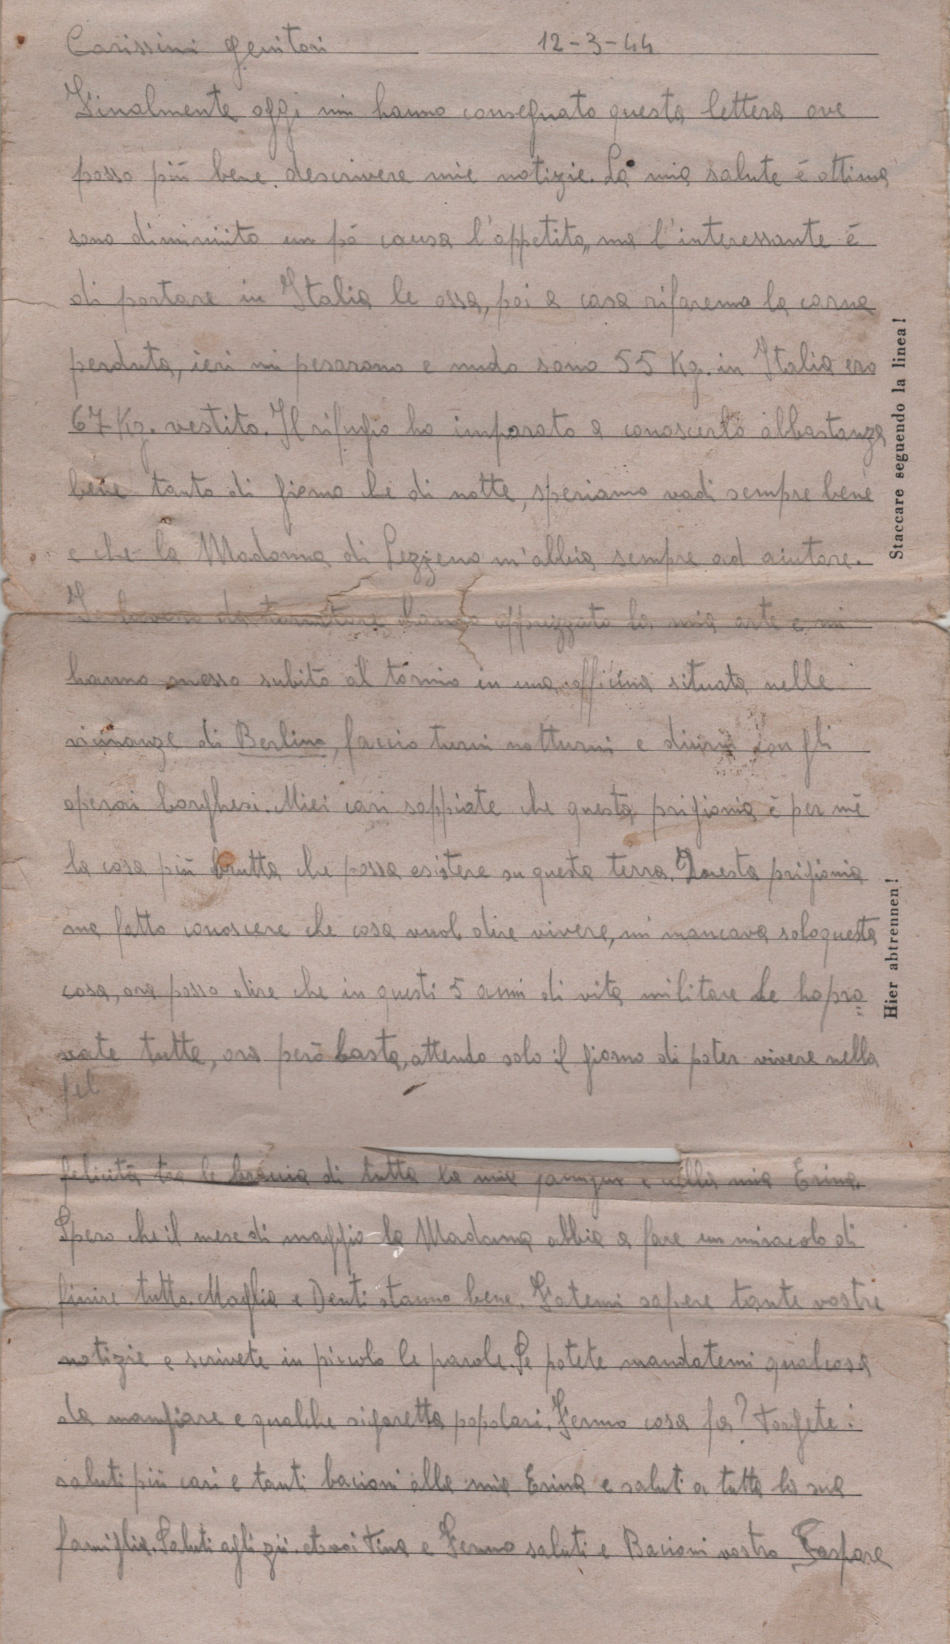 Carissimi genitori 12-3-44
Finalmente oggi mi hanno consegnato questa lettera ove
posso più bene descrivere mie notizie. La mia salute è ottima
sono diminuito un pò causa l'appetito, ma l'interessante è
di portare in Italia le ossa, poi a casa rifaremo la carne
perduta, ieri mi pesarono e nudo sono 55 Kg. in Italia ero
67 Kg. vestito. Il rifugio ho imparato a conoscerlo abbastanza
bene tanto di giorno che di notte, speriamo vadi sempre bene
e che la Madonna di Lezzeno m'abbia sempre ad aiutare.
Io lavoro da tornitore hanno apprezzato la mia arte e mi
hanno messo subito al tornio in una officina situata nelle
vicinanze di Berlino, faccio turni notturni e diurni con gli
operai borghesi. Miei cari sappiate che questa prigionia è per mè
la cosa più brutta che possa esistere su questa terra. Questa prigionia
ma fatto conoscere che cosa vuol dire vivere, mi mancava solo questa
cosa, ora posso dire che in questi 5 anni di vita militare le ho pro
vate tutte, ora però basta, attendo solo il giorno di poter vivere nella
fel
felicità tra le braccia di tutta la mia e della mia Erina.
Spero che il mese di maggio la Madonna abbia a fare un miracolo di
finire tutto. Maglia e Denti stanno bene. Fatemi sapere tante vostre
notizie e scrivete in piccolo le parole. Se potete mandatemi qualcosa
da mangiare e qualche sigaretta popolari. Fermo cosa fa? Porgete i
saluti più cari e tanti bacioni alla mia Erina e saluti a tutta la sua
famiglia. Saluti agli zii. et voi Tina e Fermo saluti e Bacioni vostro Gaspare
Staccare seguendo la linea!
Hier abtrennen!